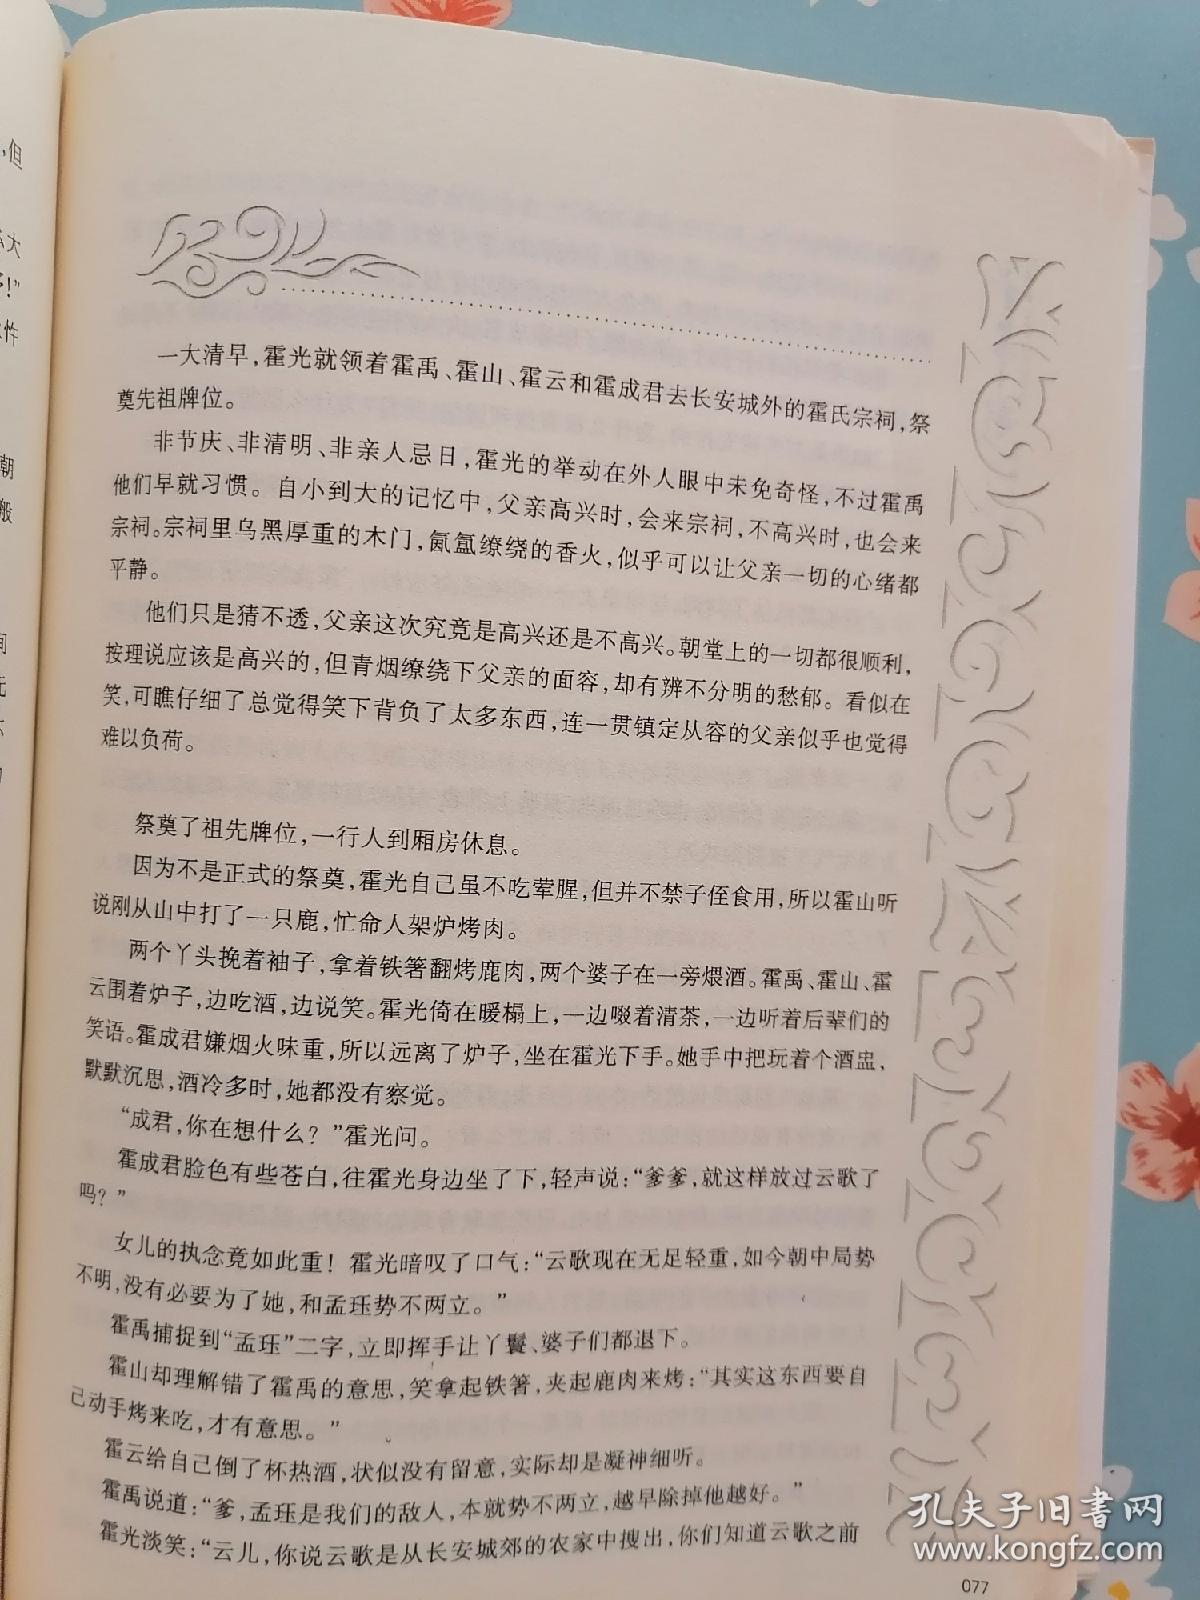 ，但
大
!”
件
朝
般
一大清早，霍光就领着霍禹、霍山、霍云和霍成君去长安城外的霍氏宗祠，祭
奠先祖牌位。
非节庆、非清明、非亲人忌日，霍光的举动在外人眼中未免奇怪，不过霍禹
他们早就习惯。自小到大的记忆中，父亲高兴时，会来宗祠，不高兴时，也会来
宗祠。宗祠里乌黑厚重的木门，氤氲缭绕的香火，似乎可以让父亲一切的心绪都
平静。
他们只是猜不透，父亲这次究竟是高兴还是不高兴。朝堂上的一切都很顺利，
按理说应该是高兴的，但青烟缭绕下父亲的面容，却有辨不分明的愁郁。看似在
笑，可瞧仔细了总觉得笑下背负了太多东西，连一贯镇定从容的父亲似乎也觉得
难以负荷。
祭奠了祖先牌位，一行人到厢房休息。
因为不是正式的祭奠，霍光自己虽不吃荤腥，但并不禁子侄食用，所以霍山听
说刚从山中打了一只鹿，忙命人架炉烤肉。
两个丫头挽着袖子，拿着铁箸翻烤鹿肉，两个婆子在一旁煨酒。霍禹、霍山、霍
云围着炉子，边吃酒，边说笑。霍光倚在暖榻上，一边啜着清茶，一边听着后辈们的
笑语。霍成君嫌烟火味重，所以远离了炉子，坐在霍光下手。她手中把玩着个酒盅，
默默沉思，酒冷多时，她都没有察觉。
“成君，你在想什么？”霍光问。
霍成君脸色有些苍白，往霍光身边坐了下，轻声说：“爹爹，就这样放过云歌了
吗？”
女儿的执念竟如此重！霍光暗叹了口气：“云歌现在无足轻重，如今朝中局势
不明，没有必要为了她，和孟珏势不两立。”
霍禹捕捉到“孟珏”二字，立即挥手让丫鬟、婆子们都退下。
霍山却理解错了霍禹的意思，笑拿起铁箸，夹起鹿肉来烤：“其实这东西要自
己动手烤来吃，才有意思。”
霍云给自己倒了杯热酒，状似没有留意，实际却是凝神细听。
霍禹说道：“爹，孟珏是我们的敌人，本就势不两立，越早除掉他越好。”
霍光淡笑：“云儿，你说云歌是从长安城郊的农家中搜出，你们知道云歌之前
077
孔夫子旧书网
www.kongfz.com